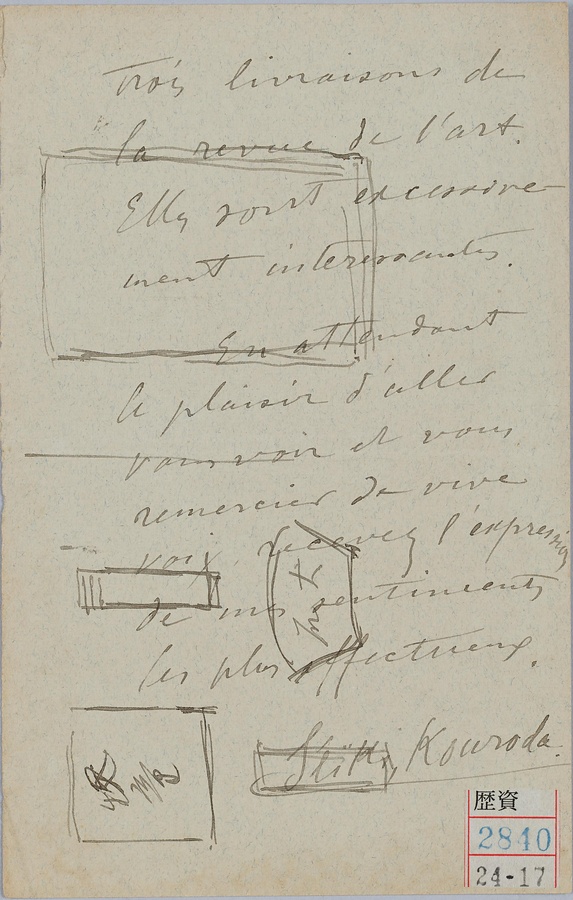 Trois livraisons de
la revue de l'art.
Elles sont excessive-
ment intéressantes.
En attendant
le plaisir d'aller
vous voir et vous
remercier de vive
voix, recevez l'expression
de mes sentiments
les plus affectueux.
Kouroda.
歴資
2840
24-17